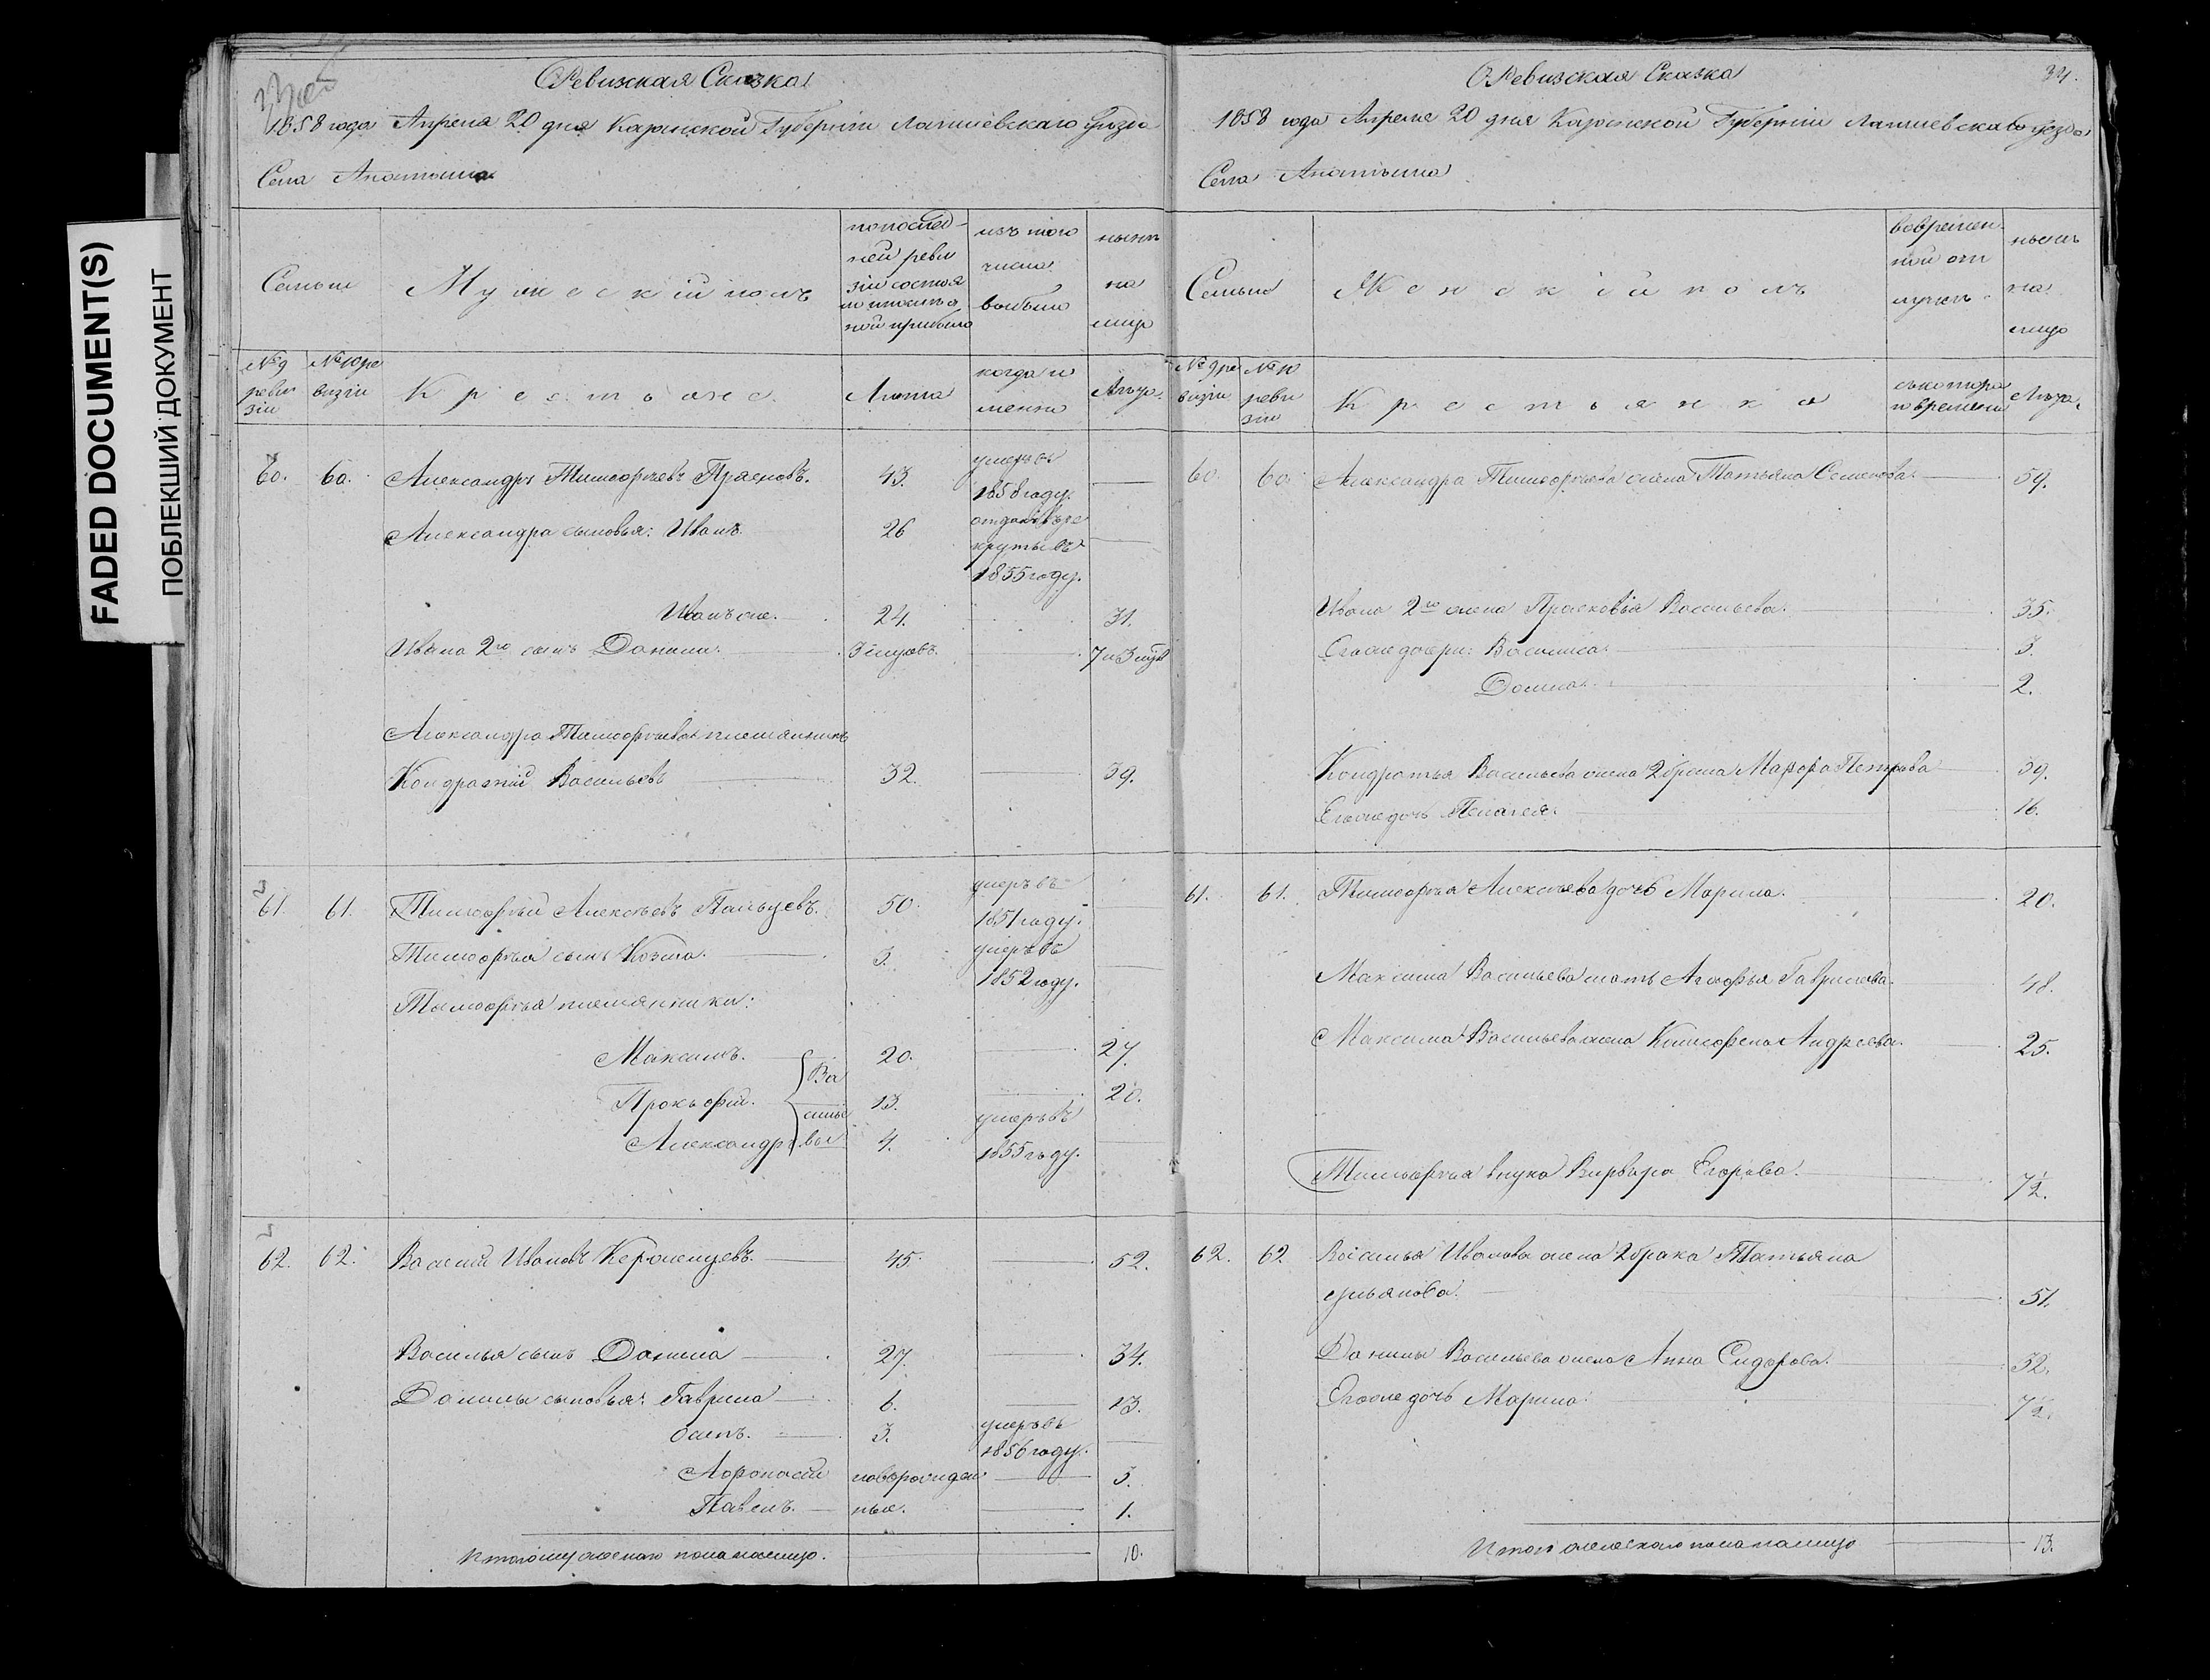 FADED DOCUMENT(S)
ПОБЛЕКШИЙ ДОКУМЕНТ
Ревизская Сказка
1858 года Апреля 20 дня Казанской Губернiи Лаишевскаго уѣзда
Села
Семьи
Мужескiй полъ
по послед-
ней реви
зiи состоя
ло и послѣ о
ной прибыло
изъ того
числа
выбыло
нынѣ
на
лицо
№ 9
реви
зiи
№ 10 ре
визiи
Крестьяне.
Лѣта
когда и
менно
Лѣта.
60. 60. Александръ Тимофѣевъ Прасновъ. 43. умеръ въ
1858 году.
Александра сыновья: Иванъ 26 отданъ въ ре
круты въ
1855 году.
Иванъ же. 24. 31.
Ивана 2го сынъ Данила. 3 мѣсяцовъ. 7 и 3 мѣс
Александра Тимофѣева племянникъ
Кондратiй Васильевъ 32. 39.
61. 61. Тимофѣй Алексѣевъ Пальцевъ. 50. умеръ въ
1851 году.
Тимофѣя сынъ Козма. 3. умеръ въ
1852 году.
Тимофѣя племянники:
Максимъ. 20. 27.
Прокофiй. Ва 13. 20.
силье
Александръ вы 4. умеръ въ
1855 году.
62. 62. Василiй Ивановъ Керженцевъ. 45. 52.
Василья сынъ Данила 27. 34.
Данилы сыновья: Гаврила 6. 13.
Осипъ. 3. умеръ въ
1856 году.
Афонасiй новорожден 3.
Павелъ. ные. 1.
Итого мужескаго пола налицо. 10.
Ревизская Сказка 34.
1858 года Апреля 20 дня Казанской Губернiи Лаишевскаго уѣзда
Села
Семьи
Женскiй полъ
во времен
ной от
лучкѣ
нынѣ
на
лицо
№ 9 ре
визiи
№ 10
реви
зiи
Крестьянки
съ котора
го времени
Лѣта.
60. 60. Александра Тимофѣева жена Татьяна Семенова. 59.
Ивана 2го жена Прасковья Васильева. 35.
Его же дочери: Василиса. 3.
Домна. 2.
Кондратья Васильева жена 2 брака Марфа Петрова 39.
Его же дочь Пелагея. 16.
61. 61. Тимофѣя Алексѣева дочь Марина. 20.
Максима Васильева мать Агафья Гаврилова. 48.
Максима Васильева жена Андреева. 25.
Тимофѣя внука Варвара Егорова. ½.
62. 62. Василья Иванова жена 2 брака Татьяна
Ульянова. 51.
Данилы Васильева жена Анна Сидорова. 32.
Его же дочь Марина. ½.
Итого женскаго пола налицо 13.